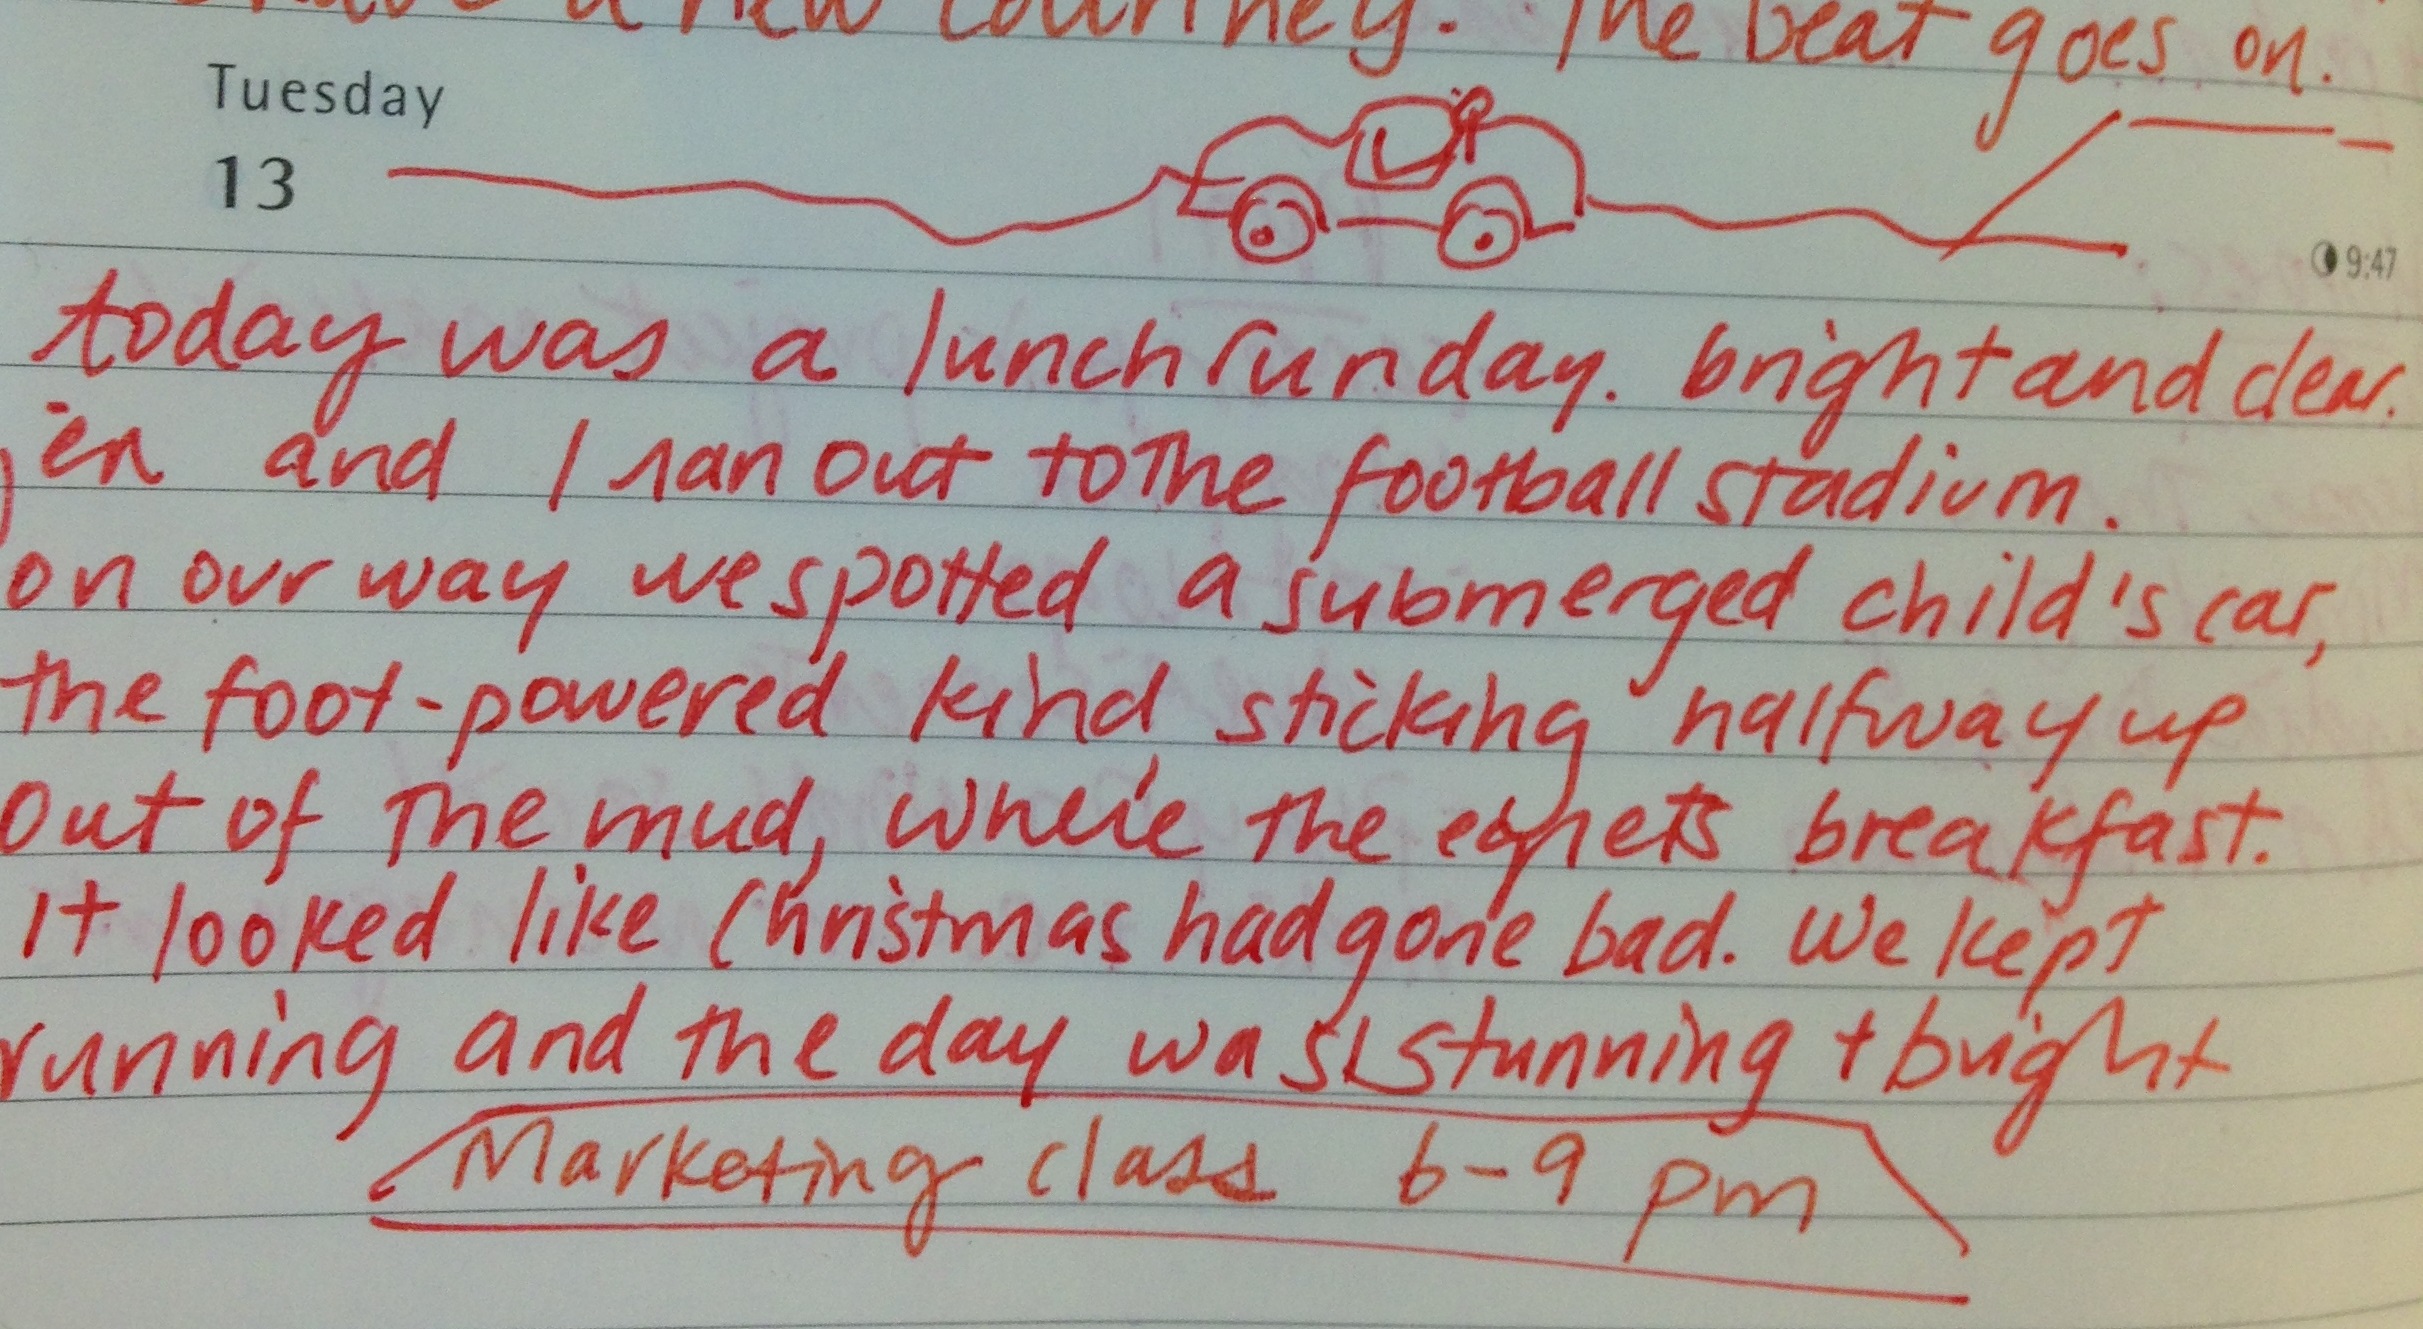 a new Courtney. The beat goes on.
Tuesday
13
9:47
today was a lunch run day. bright and clear.
jen and I ran out to the football stadium.
on our way we spotted a submerged child's car,
the foot-powered kind sticking halfway up
out of the mud, where the egrets breakfast.
It looked like Christmas had gone bad. We kept
running and the day was stunning + bright
Marketing class 6-9 pm